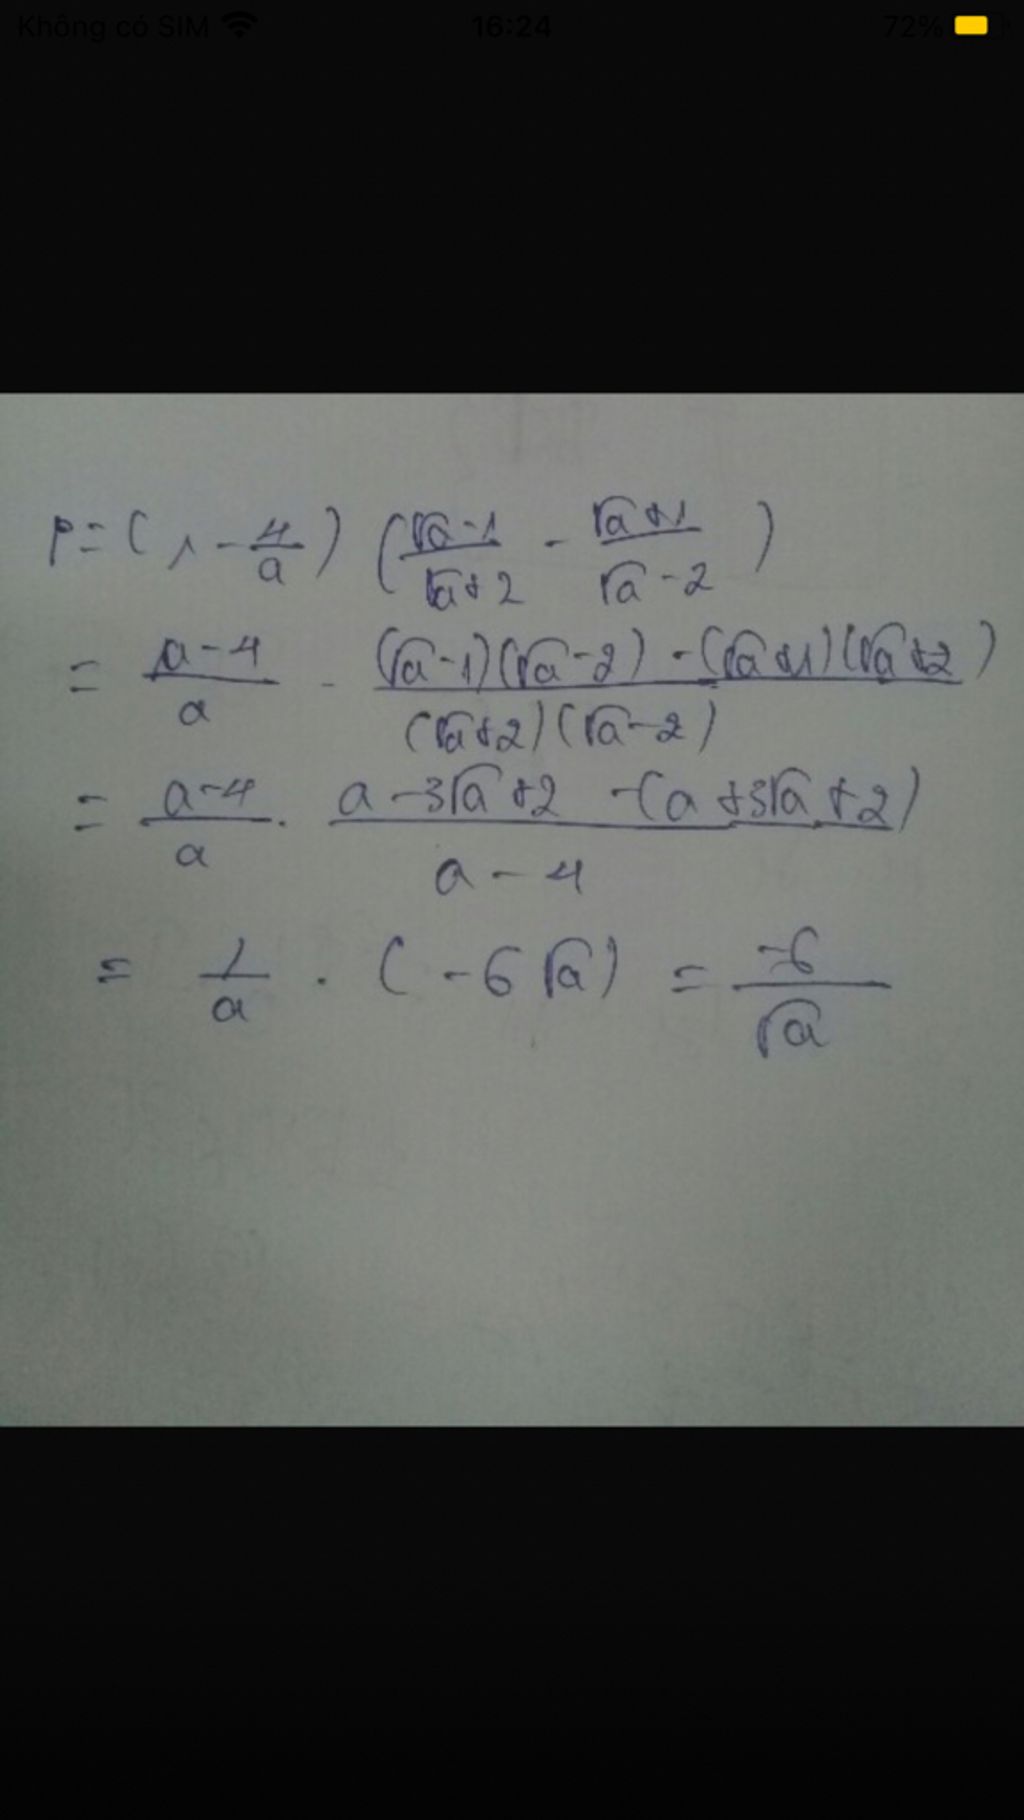 Không có SIM 16:24 72%
P = (1 - 4/a) ((√a - 1)/(√a + 2) - (√a + 1)/(√a - 2))
= (a - 4)/a · ((√a - 1)(√a - 2) - (√a + 1)(√a + 2))/((√a + 2)(√a - 2))
= (a - 4)/a · (a - 3√a + 2 - (a + 3√a + 2))/(a - 4)
= 1/a · (-6√a) = -6/√a